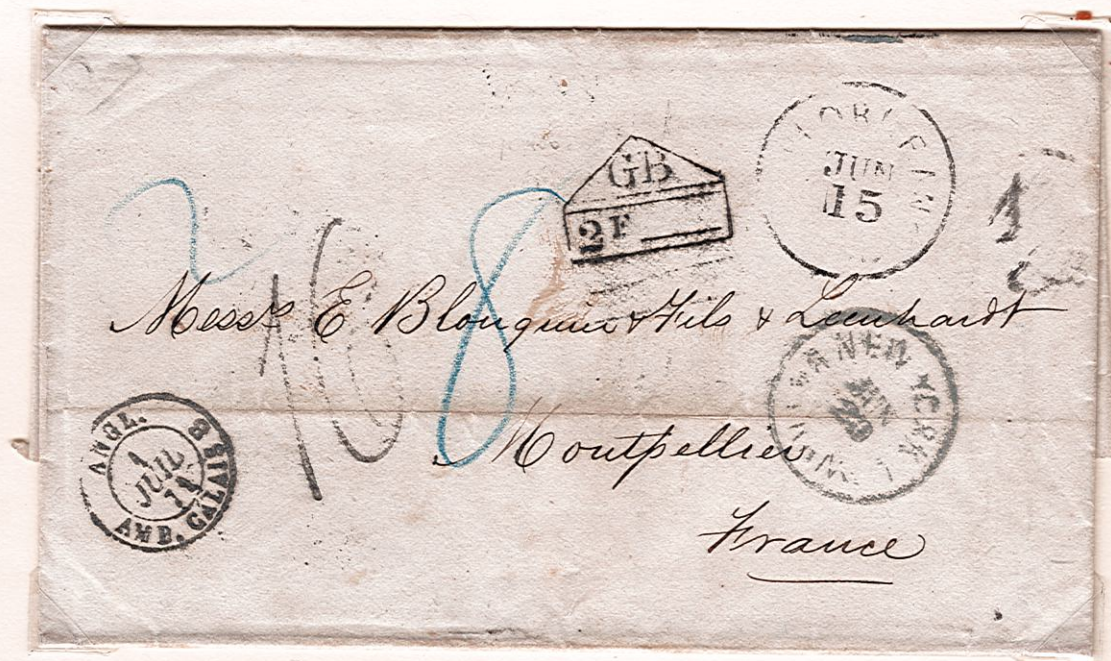 GB
2F
JUN
15
16
8
Messrs E Blouquier & Fils & Leenhardt
NEW YORK
JUN
Montpellier
France
ANGL.
1
JUIL
71
AMB. CALAIS B